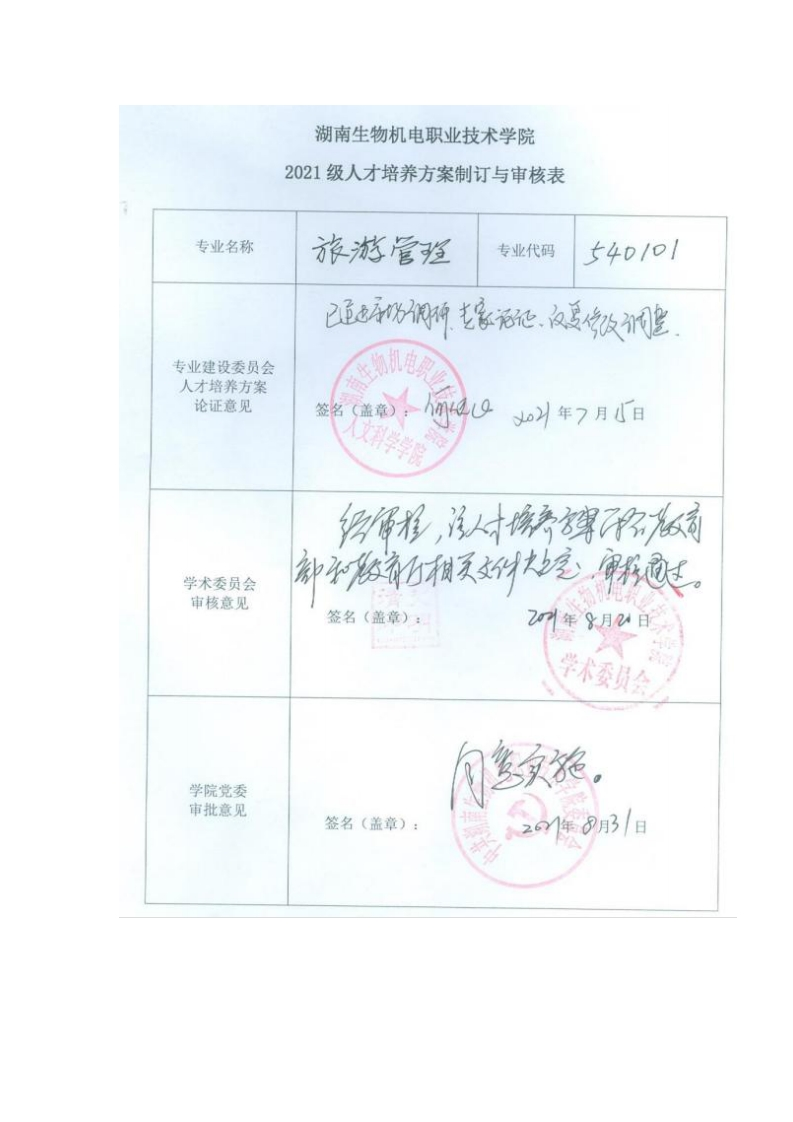 湖南生物机电职业技术学院
2021 级人才培养方案制订与审核表
专业名称 旅游管理 专业代码 540101
已通过市场调研、专家论证、反复修改调整.
专业建设委员会
人才培养方案
论证意见
签名（盖章）： 2021年7月15日
湖南生物机电职业技术学院
人文科学学院
经审核，该人才培养方案符合教育
部和教育厅相关文件规定，审核通过。
学术委员会
审核意见
签名（盖章）： 2021年8月20日
湖南生物机电职业技术学院
学术委员会
同意实施。
学院党委
审批意见
签名（盖章）： 2021年8月31日